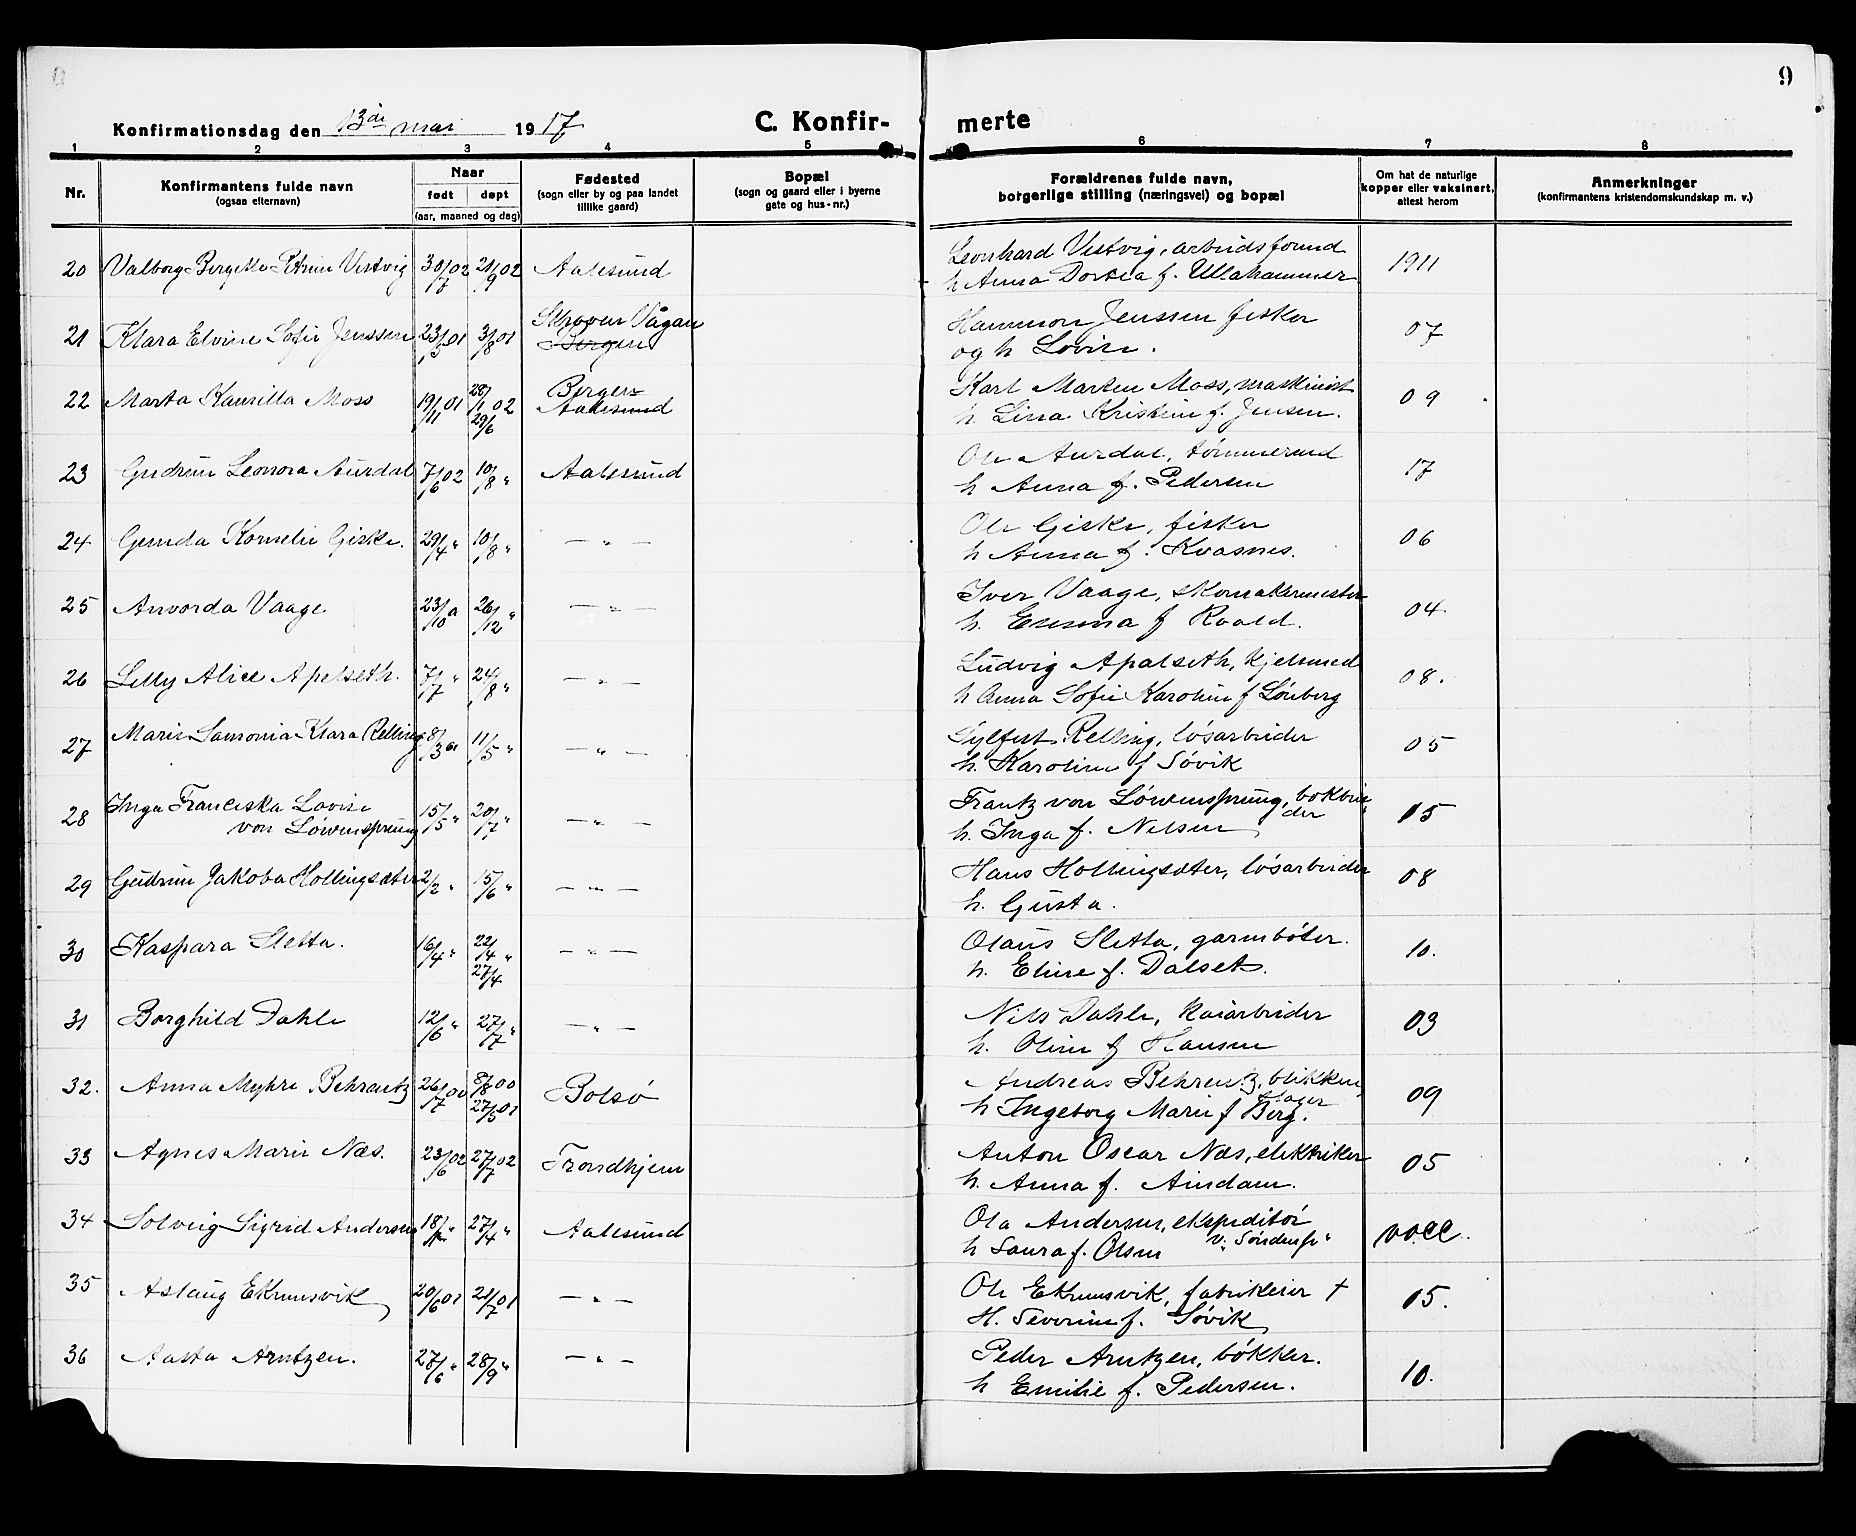 9
Konfirmationsdag den 13de mai 1917
C. Konfirmerte
1 2 3 4 5 6 7 8
Nr.
Konfirmantens fulde navn
(ogsaa efternavn)
Naar
født døpt
(aar, maaned og dag)
Fødested
(sogn eller by og paa landet
tillike gaard)
Bopæl
(sogn og gaard eller i byerne
gate og hus-nr.)
Forældrenes fulde navn,
borgerlige stilling (næringsvei) og bopæl
Om hat de naturlige
kopper eller vaksinert,
attest herom
Anmerkninger
(konfirmantens kristendomskundskap m. v.)
20 Valborg Bergitte Petrine Vestvig 30/7 02 21/9 02 Aalesund Leonhard Vestvig, arbeidsformd 1911
h Anna Dortea f. Ullahammer
21 Klara Elvine Sofie Jenssen 23/5 01 3/8 01 Skroven Vågan Hammon Jenssen fisker 07
Bergen og h Lovise.
22 Marta Kamilla Moss 19/11 01 28/1 02 29/6 Bergen Karl Marten Moss, maskinist 09
Aalesund h. Lina Kristine f. Jensen.
23 Gudrun Leonora Aurdal 7/6 02 10/8 " Aalesund Ole Aurdal, tømmermd 17
h Anna f. Pedersen
24 Gunda Kornelie Giske. 29/4 " 10/8 " — " — Ole Giske, fisker 06
h Anna f. Kvasnes.
25 Anvorda Vaage 23/10 26/12 " — " — Iver Vaage, skomakermester 04
h. Emma f Roald.
26 Lilly Alice Apelseth. 7/7 " 24/8 " — " — Ludvig Apalseth, kjelsmed 08.
h Anna Sofie Karoline f Lönberg
27 Marie Samonia Klara Relling 8/3 11/5 " — " — Sylfest Relling, løsarbeider 05
h. Karoline f Søvik
28 Inga Franciska Lovise 15/5 " 20/7 " — " — Frantz von Löwensprung, bokbin- 15
von Löwensprung der
h. Inga f. Nelsen
29 Gudrun Jakoba Hollingsæter 2/2 " 15/6 " — " — Hans Hollingsæter, løsarbeider 08
h. Gusta.
30 Kaspara Sletta. 16/4 " 22/4 " 27/4 — " — Olaus Sletta, garnbøter. 10.
h. Eline f. Dalset.
31 Borghild Dahle 12/6 " 27/7 " — " — Nils Dahle, kaiarbeider 03
h. Oline f Hansen
32. Anna Myhre Behrentz 26/7 00 8/8 00 27/5 01 Bolsö Andreas Behrentz, blikken- 09
slager
h Ingeborg Marie f Berg.
33 Agnes Marie Næs. 23/6 02 27/7 02 Trondhjem Anton Oscar Næs, elektriker 05
h. Anna f. Aindam.
34 Solveig Sigrid Andersen 18/ " 27/4 " Aalesund Ola Andersen, ekspeditør vacc.
h Laura f. Olsen v. "Søndmfp"
35 Aslaug Ekremsvik 20/6 01 21/7 01 — " — Ole Ekremsvik, fabrikeier † 15.
H. Severine f. Søvik
36 Aasta Arntzen. 27/6 " 28/9 " — " — Peder Arntzen, bøkker. 10.
h Emilie f. Pedersen.